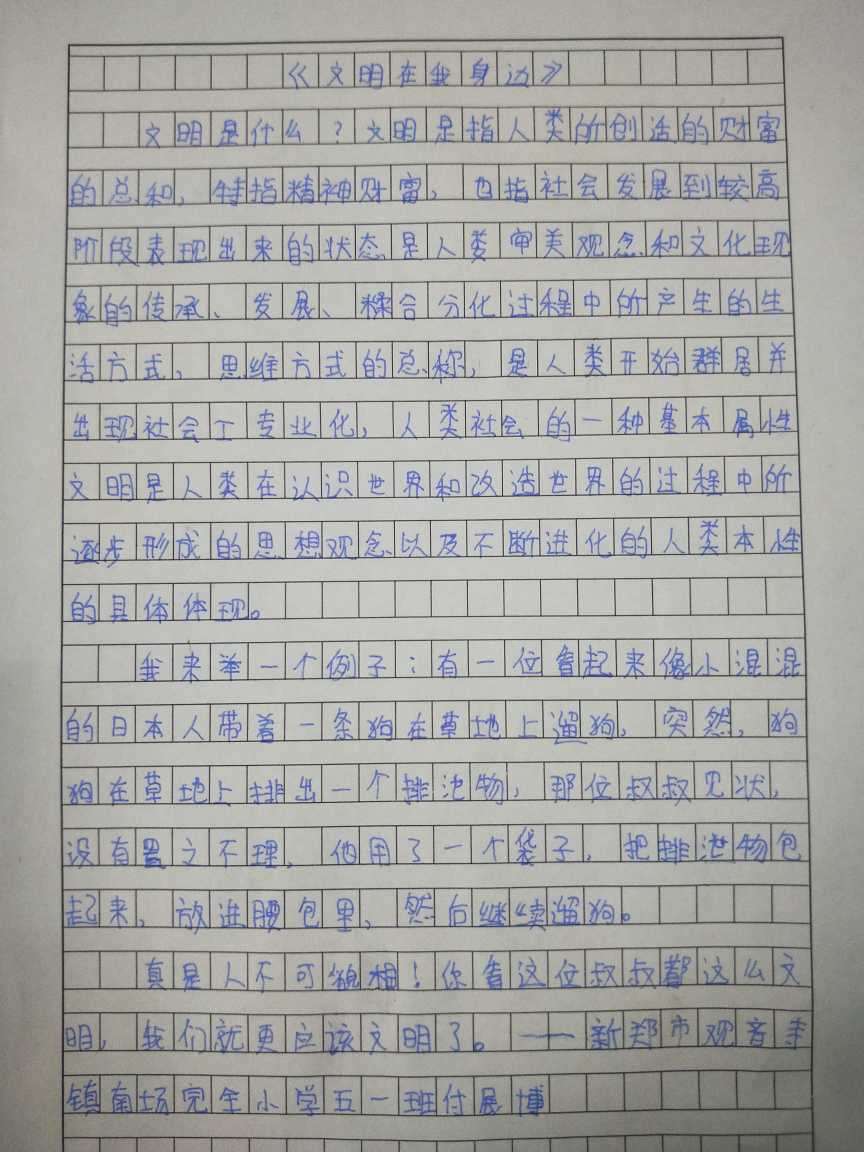 《文明在我身边》
文明是什么？文明是指人类所创造的财富
的总和，特指精神财富，也指社会发展到较高
阶段表现出来的状态是人类审美观念和文化现
象的传承、发展、糅合分化过程中所产生的生
活方式、思维方式的总称，是人类开始群居并
出现社会工专业化，人类社会的一种基本属性
文明是人类在认识世界和改造世界的过程中所
逐步形成的思想观念以及不断进化的人类本性
的具体体现。
我来举一个例子：有一位看起来像小混混
的日本人带着一条狗在草地上遛狗，突然，狗
狗在草地上排出一个排泄物，那位叔叔见状，
没有置之不理，他用了一个袋子，把排泄物包
起来，放进腰包里，然后继续遛狗。
真是人不可貌相！你看这位叔叔都这么文
明，我们就更应该文明了。——新郑市观音寺
镇南场完全小学五一班付展博